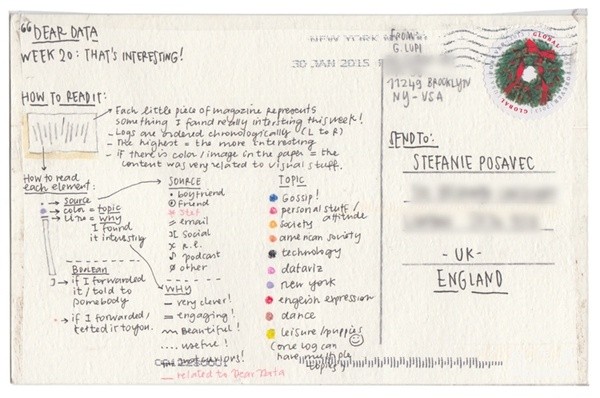 "DEAR DATA
WEEK 20: THAT'S INTERESTING!
HOW TO READ IT:
Each little piece of magazine represents
something I found really interesting this week!
- Logs are ordered chronologically (L to R)
- The highest = the more interesting
- if there is color/image in the paper = the
content was very related to visual stuff.
How to read
each element:
→ source
→ color = topic
→ line = why
I found
it interesting
BOOLEAN
→ if I forwarded
it / told to
somebody
→ if I forwarded/
texted it to you.
SOURCE
boyfriend
friend
email
social
R.L.
podcast
other
WHY
very clever!
engaging!
Beautiful!
useful!
related to Dear Data
TOPIC
Gossip!
personal stuff/
attitude
society
american society
technology
dataviz
new york
english expression
dance
leisure/puppies
(one log can
have multiple
topics)
NEW YORK
30 JAN 2015
FROM:
G. LUPI
11249 BROOKLYN
NY - USA
GLOBAL
GLOBAL
SEND TO:
STEFANIE POSAVEC
- UK -
ENGLAND